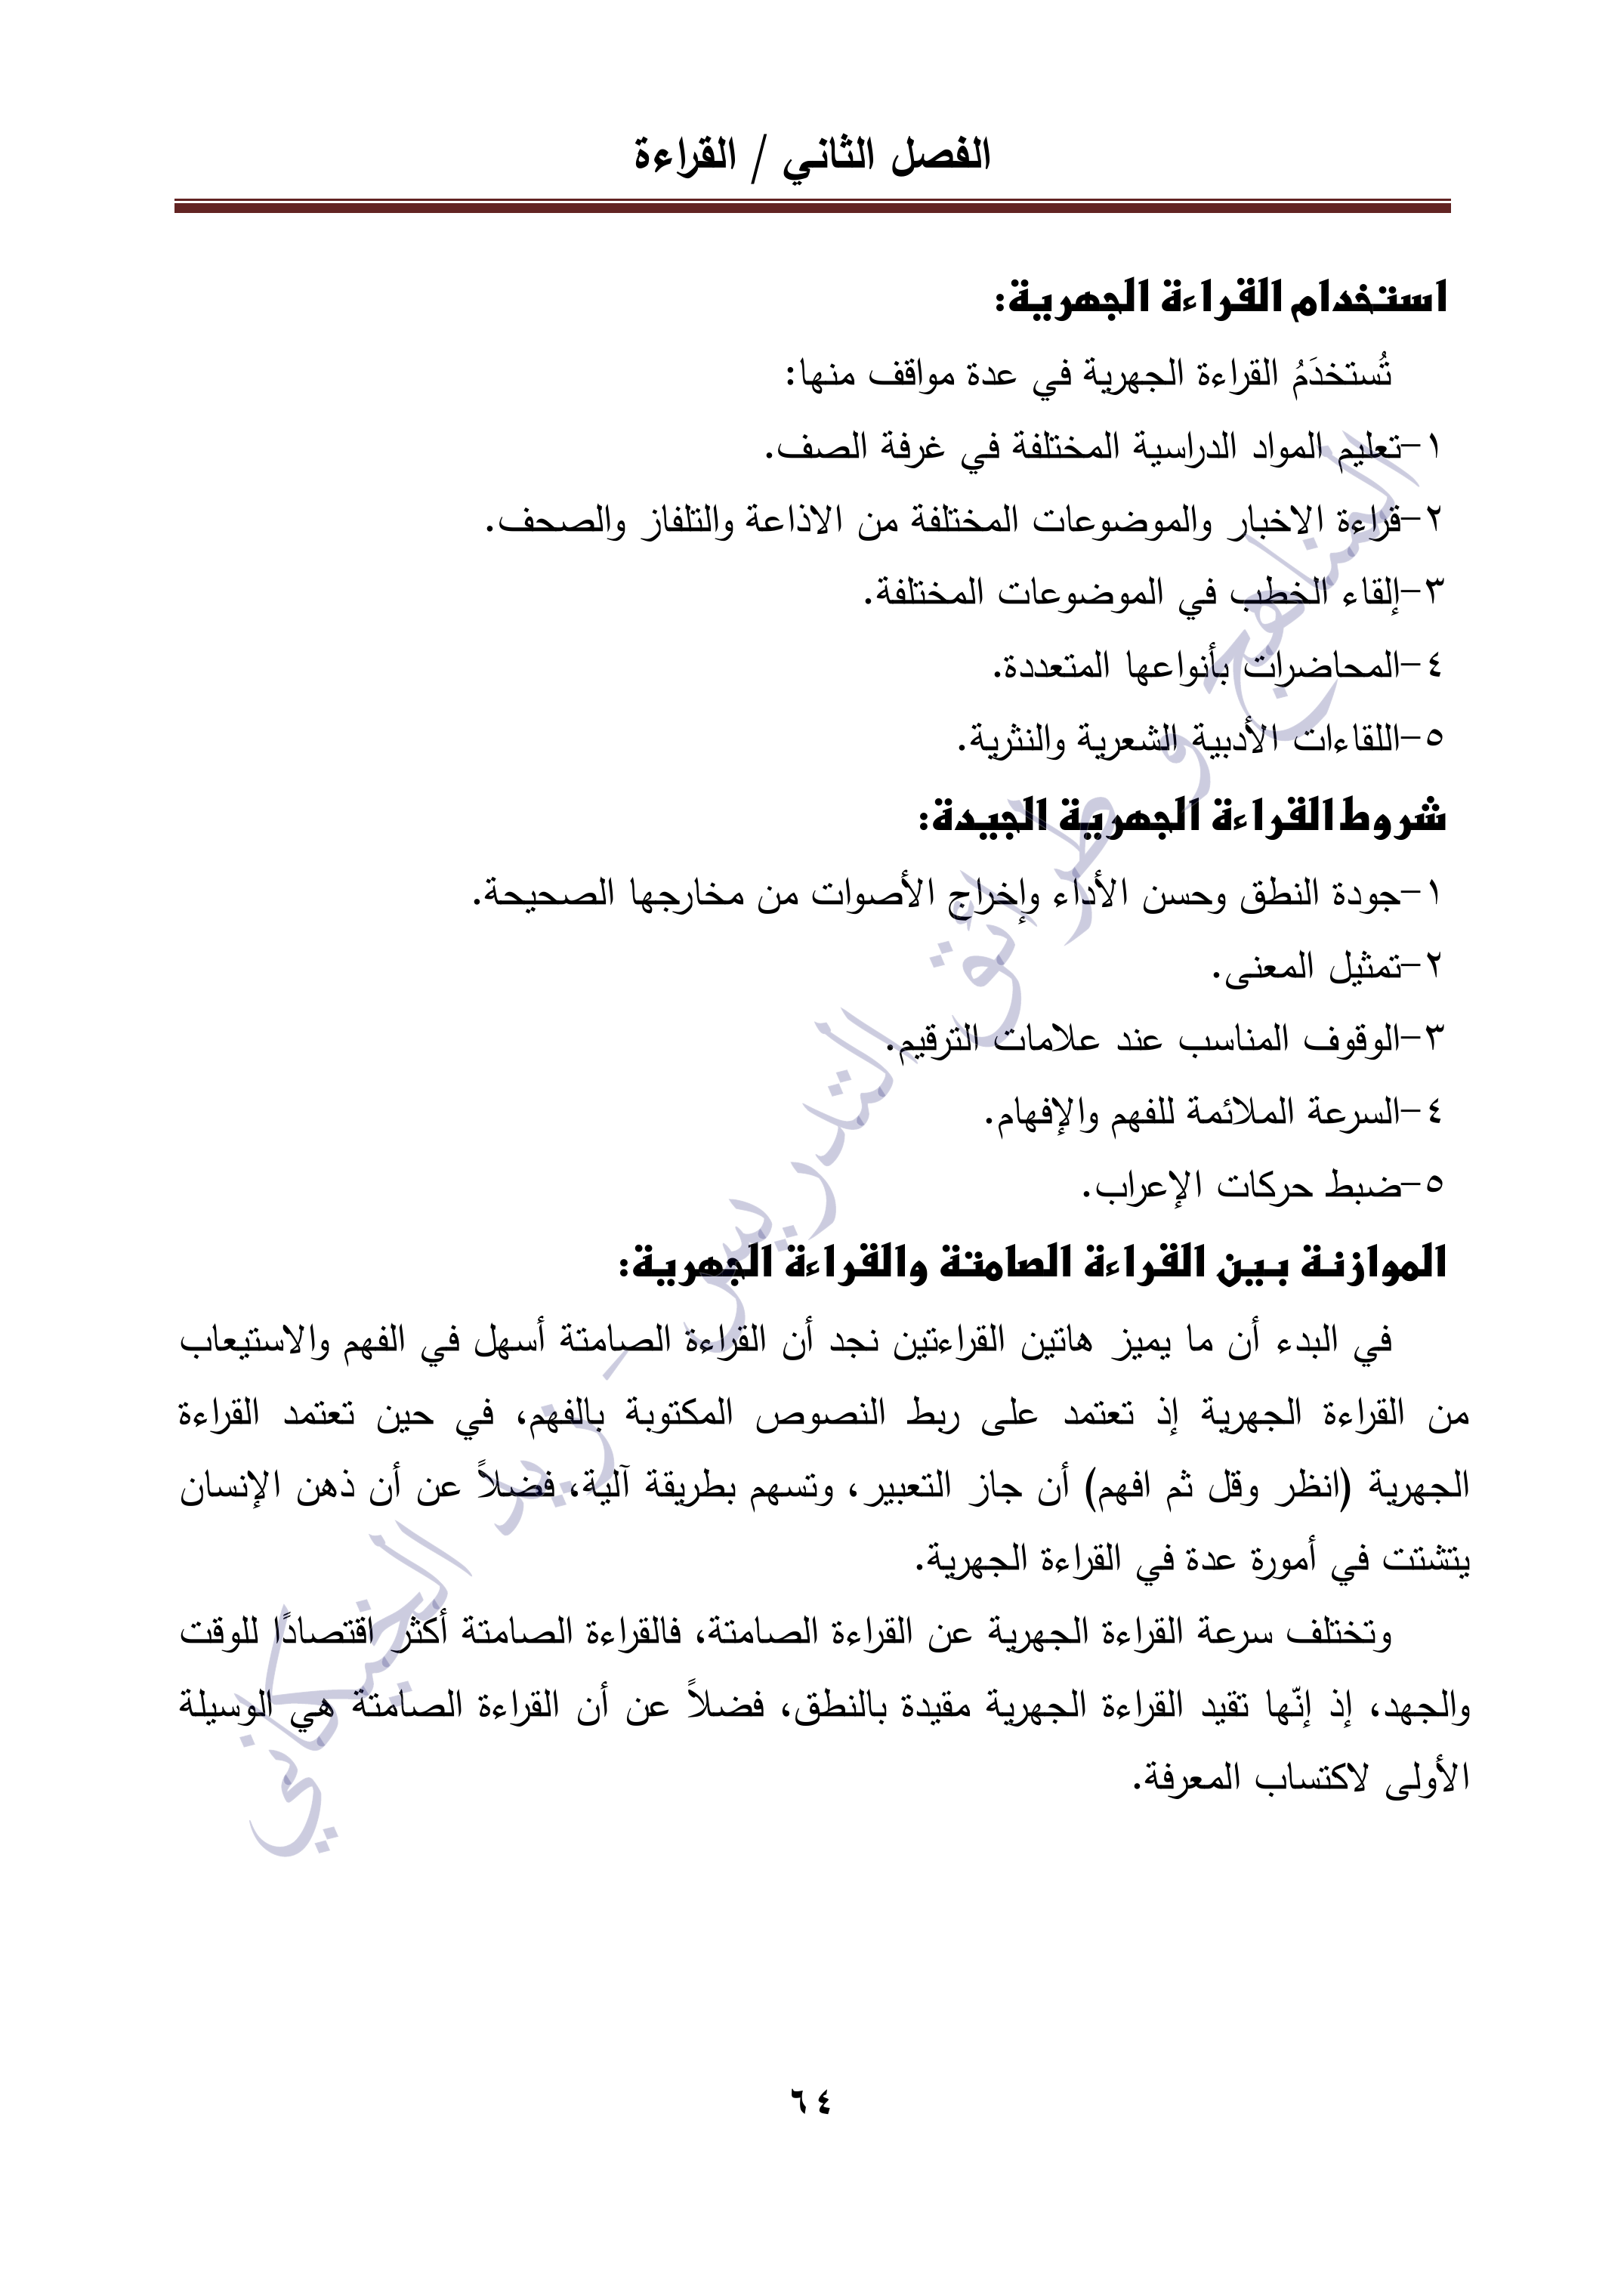 الفصل الثاني / القراءة
استخدام القراءة الجهرية:
تُستخدَمُ القراءة الجهرية في عدة مواقف منها:
١-تعليم المواد الدراسية المختلفة في غرفة الصف.
٢-قراءة الاخبار والموضوعات المختلفة من الاذاعة والتلفاز والصحف.
٣-إلقاء الخطب في الموضوعات المختلفة.
٤-المحاضرات بأنواعها المتعددة.
٥-اللقاءات الأدبية الشعرية والنثرية.
شروط القراءة الجهرية الجيدة:
١-جودة النطق وحسن الأداء وإخراج الأصوات من مخارجها الصحيحة.
٢-تمثيل المعنى.
٣-الوقوف المناسب عند علامات الترقيم.
٤-السرعة الملائمة للفهم والإفهام.
٥-ضبط حركات الإعراب.
الموازنة بين القراءة الصامتة والقراءة الجهرية:
في البدء أن ما يميز هاتين القراءتين نجد أن القراءة الصامتة أسهل في الفهم والاستيعاب
من القراءة الجهرية إذ تعتمد على ربط النصوص المكتوبة بالفهم، في حين تعتمد القراءة
الجهرية (انظر وقل ثم افهم) أن جاز التعبير، وتسهم بطريقة آلية، فضلاً عن أن ذهن الإنسان
يتشتت في أمورة عدة في القراءة الجهرية.
وتختلف سرعة القراءة الجهرية عن القراءة الصامتة، فالقراءة الصامتة أكثر اقتصادًا للوقت
والجهد، إذ إنّها تقيد القراءة الجهرية مقيدة بالنطق، فضلاً عن أن القراءة الصامتة هي الوسيلة
الأولى لاكتساب المعرفة.
المناهج و طرائق التدريس - زيد الخيكاني
٦٤